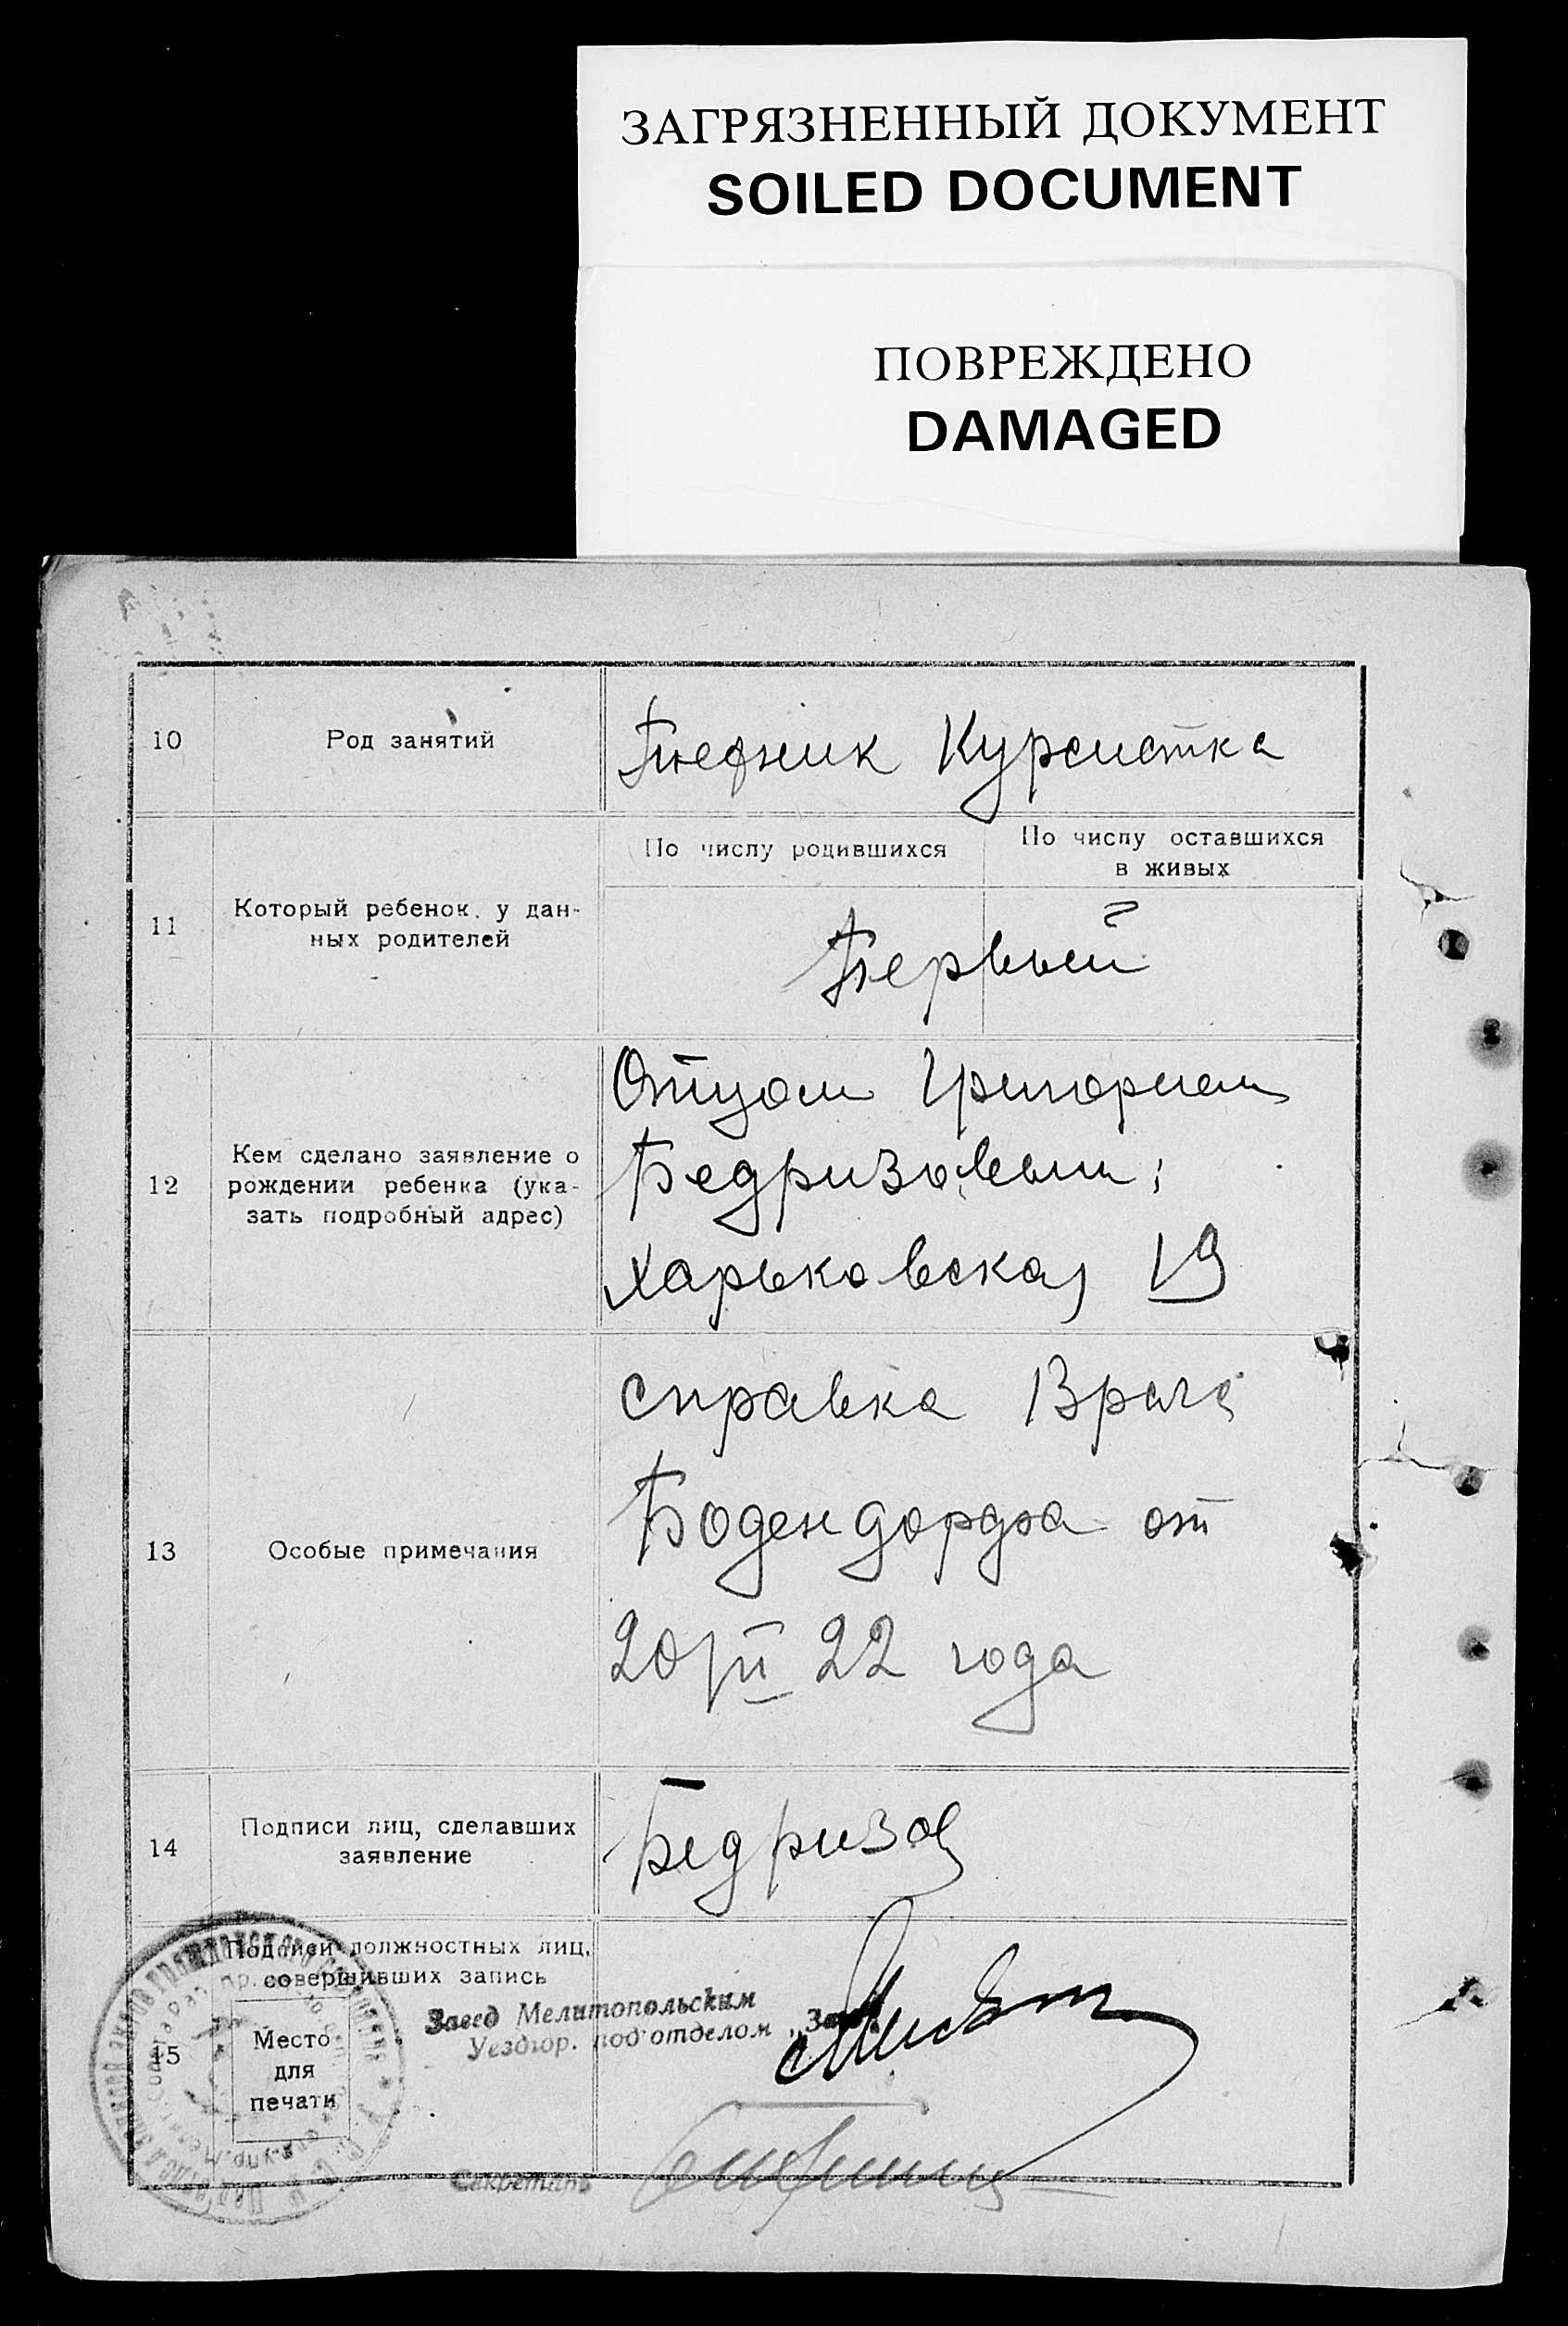 ЗАГРЯЗНЕННЫЙ ДОКУМЕНТ
SOILED DOCUMENT
ПОВРЕЖДЕНО
DAMAGED
10 Род занятий Курсистка
По числу родившихся
По числу оставшихся
в живых
11
Который ребенок у дан-
ных родителей
Первый
12
Кем сделано заявление о
рождении ребенка (ука-
зать подробный адрес)
Отцом Григорием
Бедризовым;
Харьковская 19
13 Особые примечания
справка Врача
Бодендорфа от
20/III 22 года
14
Подписи лиц, сделавших
заявление
Бедризов
15
Подписи должностных лиц,
совершивших запись
Место
для
печати
Завед Мелитопольским
Уездгор. под'отделом „Загс"
Секретарь